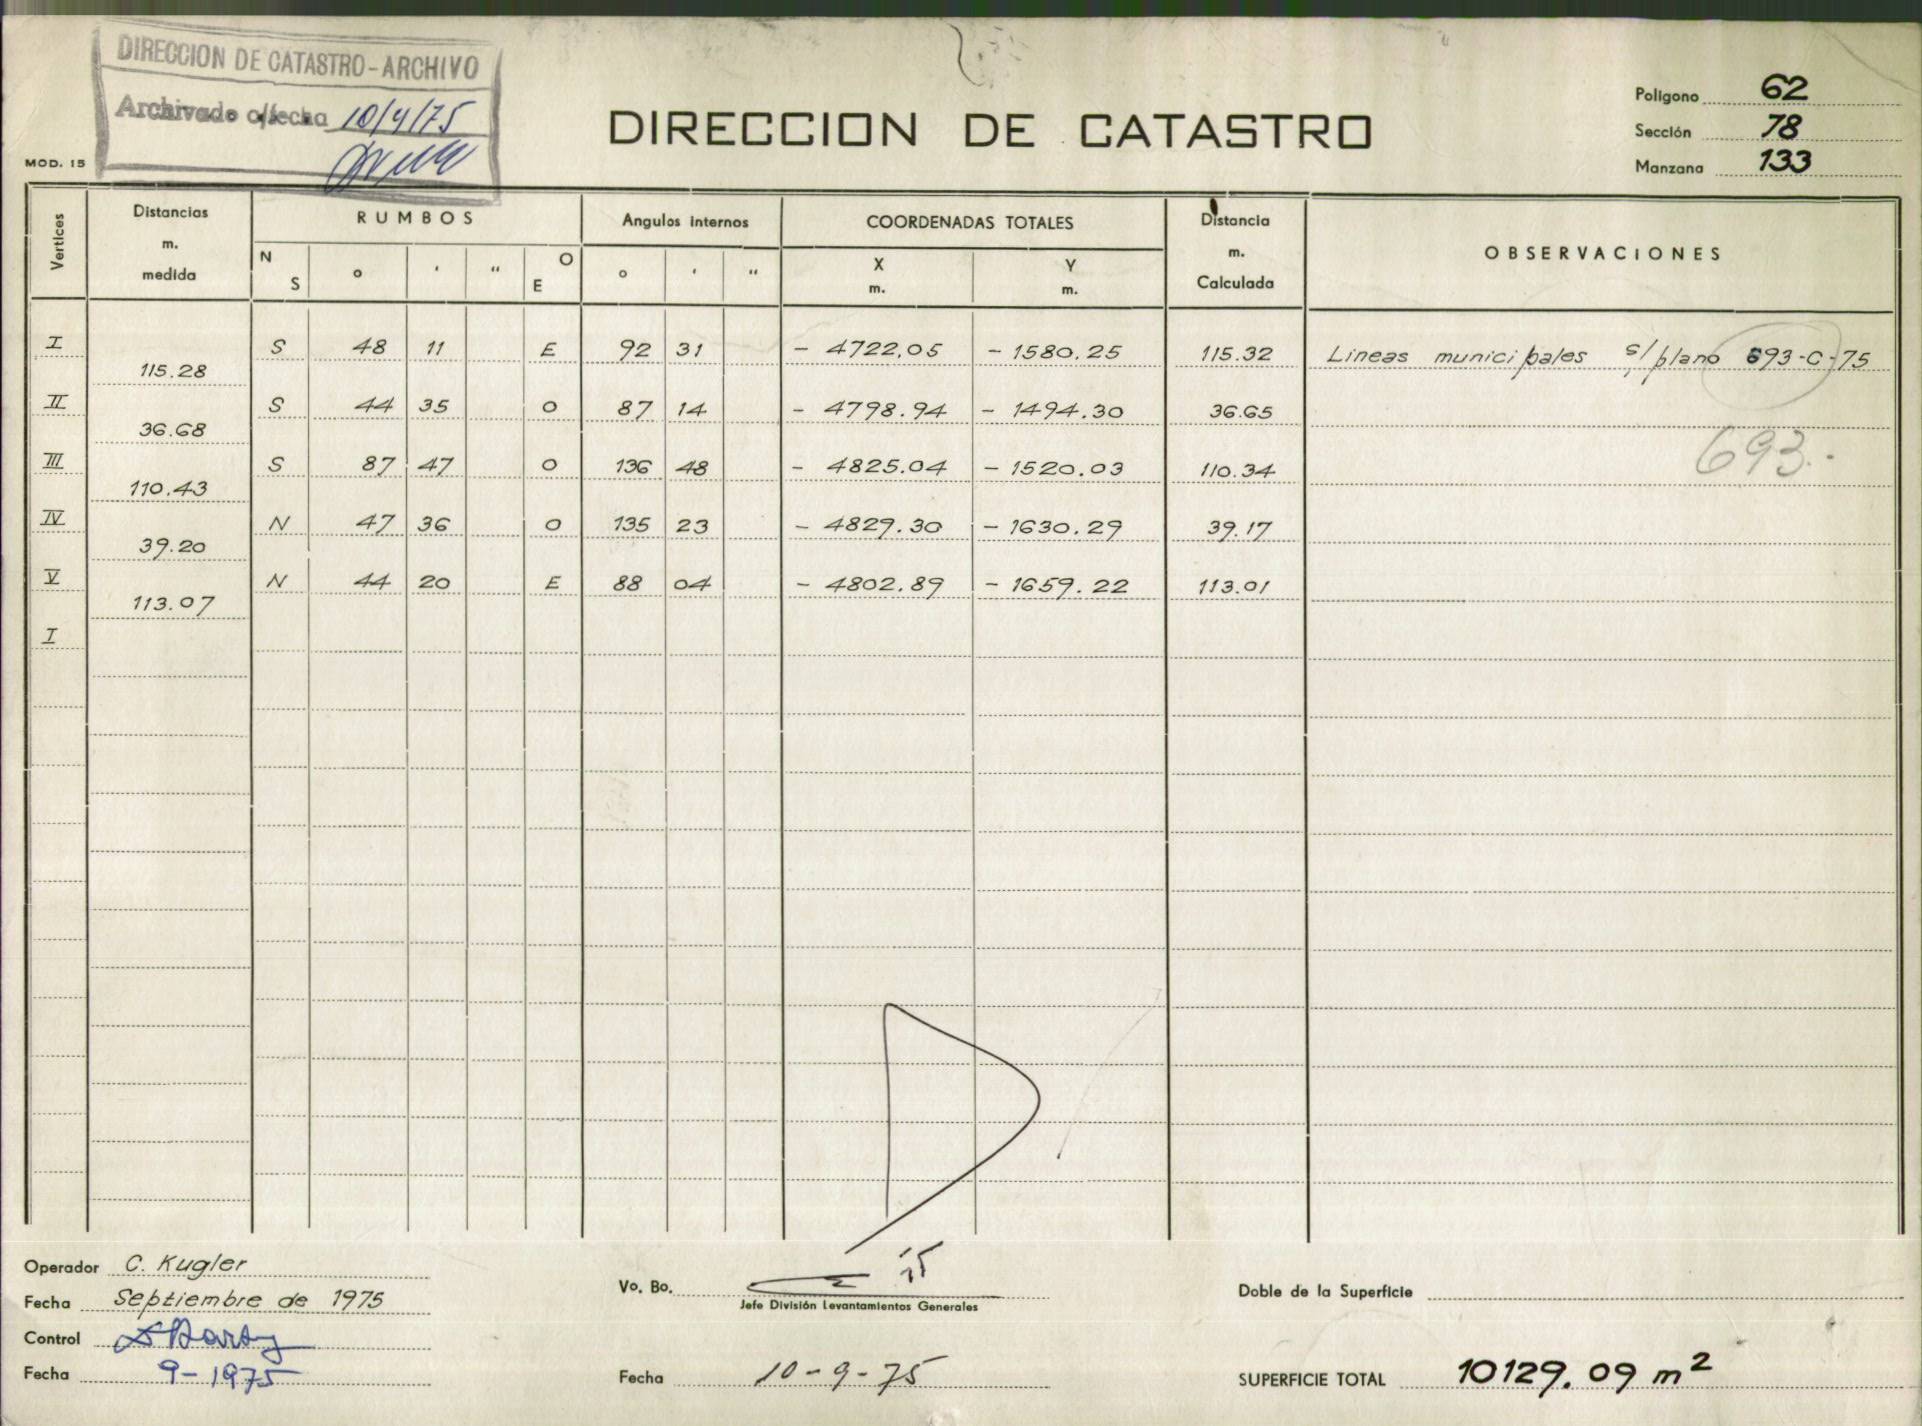 DIRECCION DE CATASTRO - ARCHIVO
Archivado c/fecha 10/4/75
MOD. 15
DIRECCION DE CATASTRO
Poligono 62
Sección 78
Manzana 133
Vertices
Distancias m. medida
RUMBOS
N S ° ' " O E
Angulos internos
° ' "
COORDENADAS TOTALES
X m. Y m.
Distancia m. Calculada
OBSERVACIONES
I S 48 11 E 92 31 - 4722,05 - 1580.25 115.32 Lineas municipales s/plano 693-C-75
115.28
II S 44 35 O 87 14 - 4798.94 - 1494.30 36.65
36.68
693.-
III S 87 47 O 136 48 - 4825.04 - 1520.03 110.34
110.43
IV N 47 36 O 135 23 - 4829.30 - 1630.29 39.17
39.20
V N 44 20 E 88 04 - 4802.89 - 1659.22 113.01
113.07
I
Operador C. Kugler
Fecha Septiembre de 1975
Control
Fecha 9-1975
Vo. Bo.
Jefe División Levantamientos Generales
Fecha 10-9-75
Doble de la Superficie
SUPERFICIE TOTAL 10129.09 m²